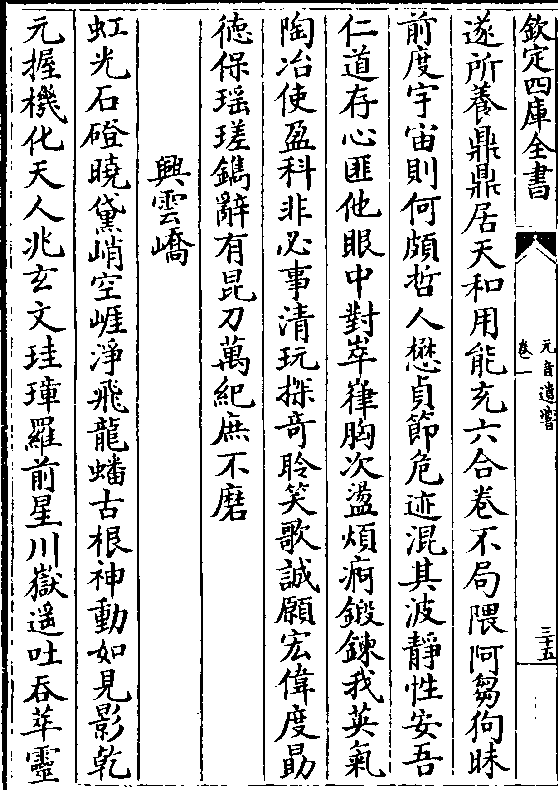 欽定四庫全書
元音遺響
卷一
三十五
遂所養鼎鼎居天和用能充六合卷不局隈阿芻狗昧
前度宇宙則何頗哲人懋貞節危迹混其波靜性安吾
仁道存心匪他眼中對崒嵂胸次盪煩痾鍛鍊我英氣
陶冶使盈科非必事清玩探奇聆笑歌誠願宏偉度勗
徳保瑶瑳鐫辭有昆刀萬紀庶不磨
興雲嶠
虹光石磴曉黛峭空崕淨飛龍蟠古根神動如見影乾
元握機化天人兆玄文珪璋羅前星川嶽遥吐吞萃靈